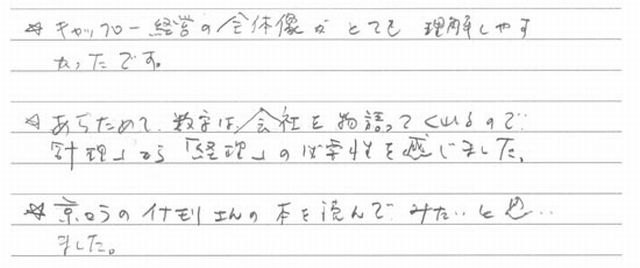 ☆ キャッフロー経営の全体像がとても理解しやす
かったです。
☆ あらためて、数字は、会社を物語ってくれるので
「計理」から「経理」の必要性を感じました。
☆ 京セラのイナモリさんの本を読んでみたいと思い
ました。